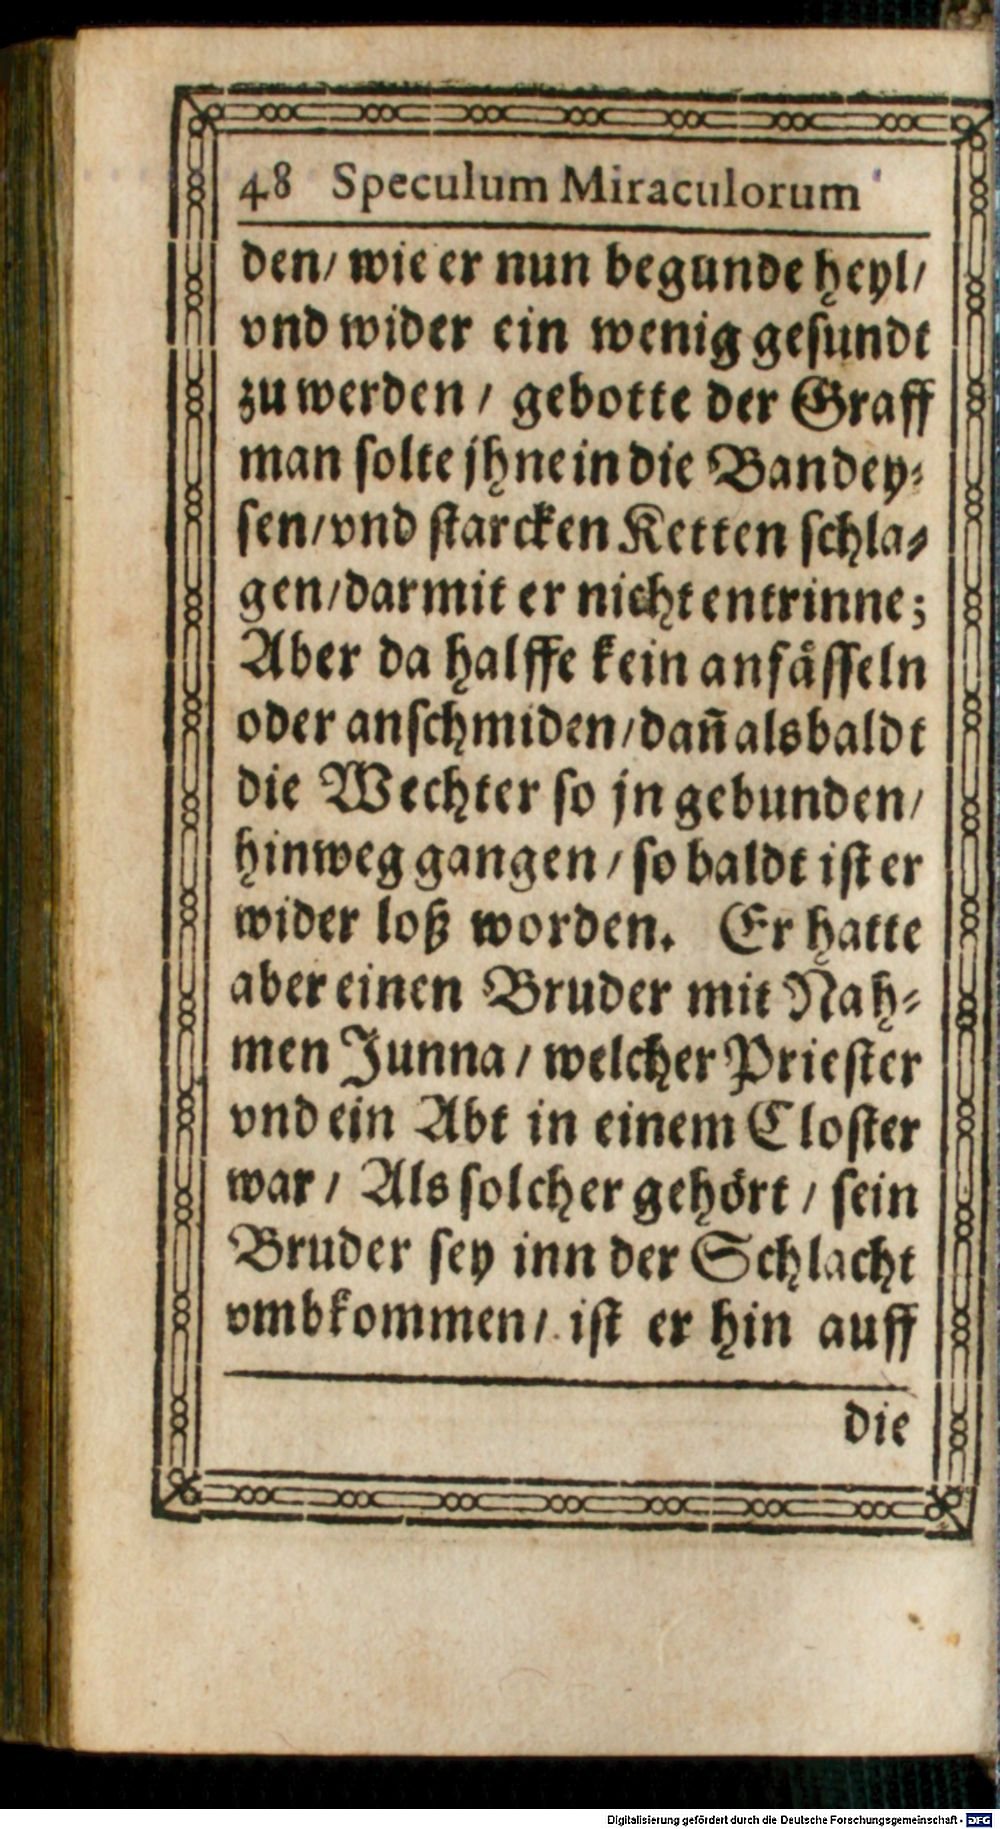 48 Speculum Miraculorum
den/ wie er nun begunde heyl/
vnd wider ein wenig gesundt
zu werden / gebotte der Graff
man solte jhne in die Bandey⸗
sen/vnd starcken Ketten schla⸗
gen/darmit er nicht entrinne;
Aber da halffe kein anfåsseln
oder anschmiden/dañ alsbaldt
die Wechter so jn gebunden/
hinweg gangen / so baldt ist er
wider loß worden. Er hatte
aber einen Bruder mit Nah⸗
men Junna / welcher Priester
vnd ein Abt in einem Closter
war / Als solcher gehört / sein
Bruder sey inn der Schlacht
vmbkommen/ ist er hin auff
die
Digitalisierung gefördert durch die Deutsche Forschungsgemeinschaft - DFG